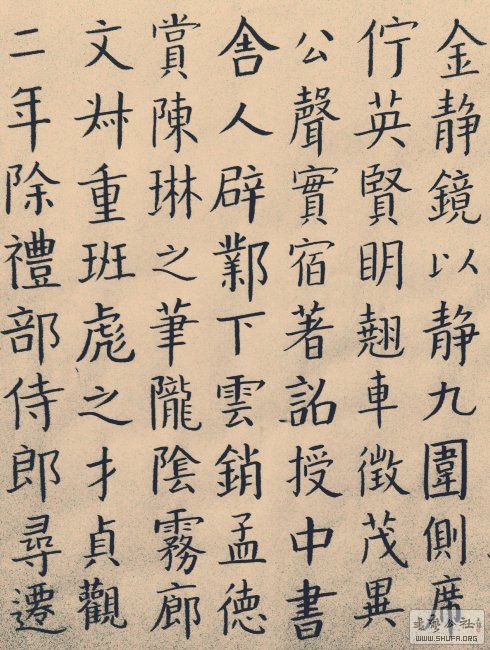 金静鏡以静九圍側席
佇英賢眀翹車徵茂異
公聲實宿著詔授中書
舍人辟鄴下雲銷孟徳
賞陳琳之筆隴陰霧廊
文艸重班彪之才貞觀
二年除禮部侍郎尋遷
WWW.SHUFA.ORG